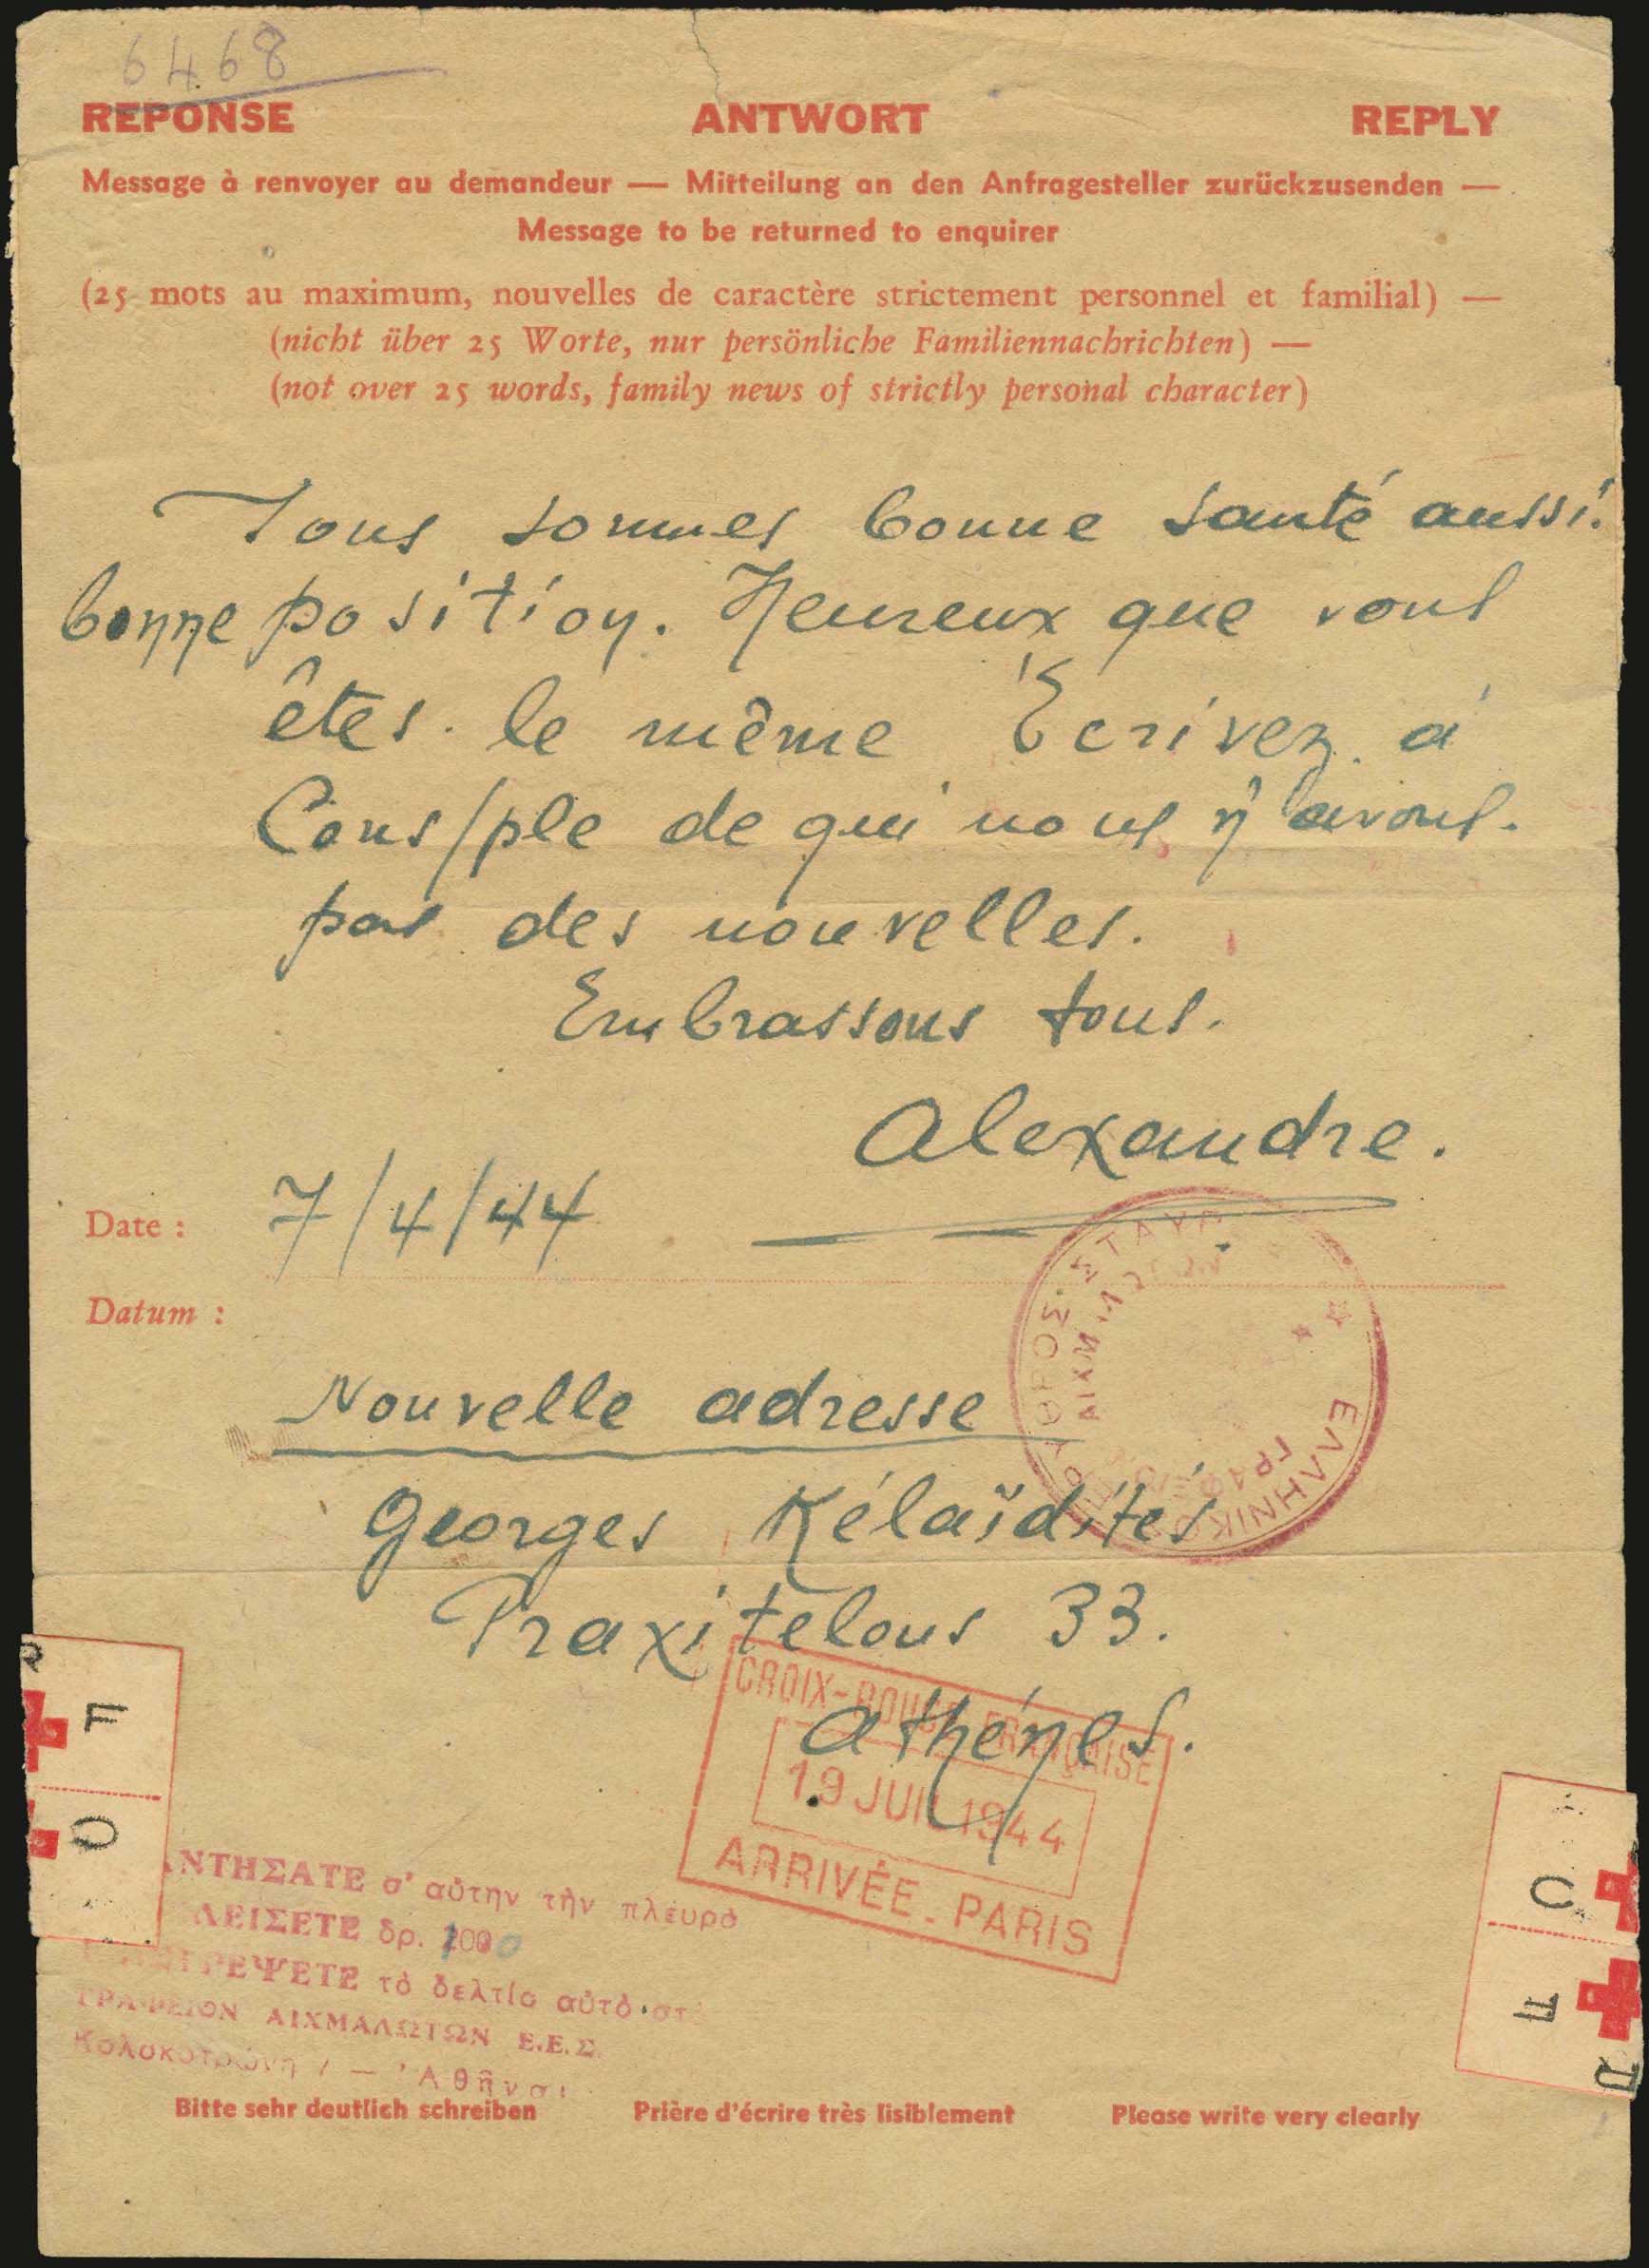 6468
REPONSE ANTWORT REPLY
Message à renvoyer au demandeur — Mitteilung an den Anfragesteller zurückzusenden —
Message to be returned to enquirer
(25 mots au maximum, nouvelles de caractère strictement personnel et familial) —
(nicht über 25 Worte, nur persönliche Familiennachrichten) —
(not over 25 words, family news of strictly personal character)
Tous sommes bonne santé aussi
bonne position. Heureux que vous
êtes le même Écrivez à
Cons/ple de qui nous n'avons
pas des nouvelles.
Embrassons tous.
Alexandre.
Date : 7/4/44
Datum :
Nouvelle adresse
Georges Kélaïditès
Praxitelous 33.
Athénes.
CROIX-ROUGE FRANÇAISE
19 JUIL 1944
ARRIVÉE - PARIS
ΕΛΛΗΝΙΚΟΣ
F
O
C
F
ΝΤΗΣΑΤΕ σ' αὐτην τὴν πλευρὰ
ΛΕΙΣΕΤΕ δρ. 1000
ΡΕΨΕΤΕ τὸ δελτίο αὐτὸ στ
ΓΡΑΦΕΙΟΝ ΑΙΧΜΑΛΩΤΩΝ Ε.Ε.Σ.
Κολοκοτρώνη – Ἀθῆναι
Bitte sehr deutlich schreiben Prière d'écrire très lisiblement Please write very clearly